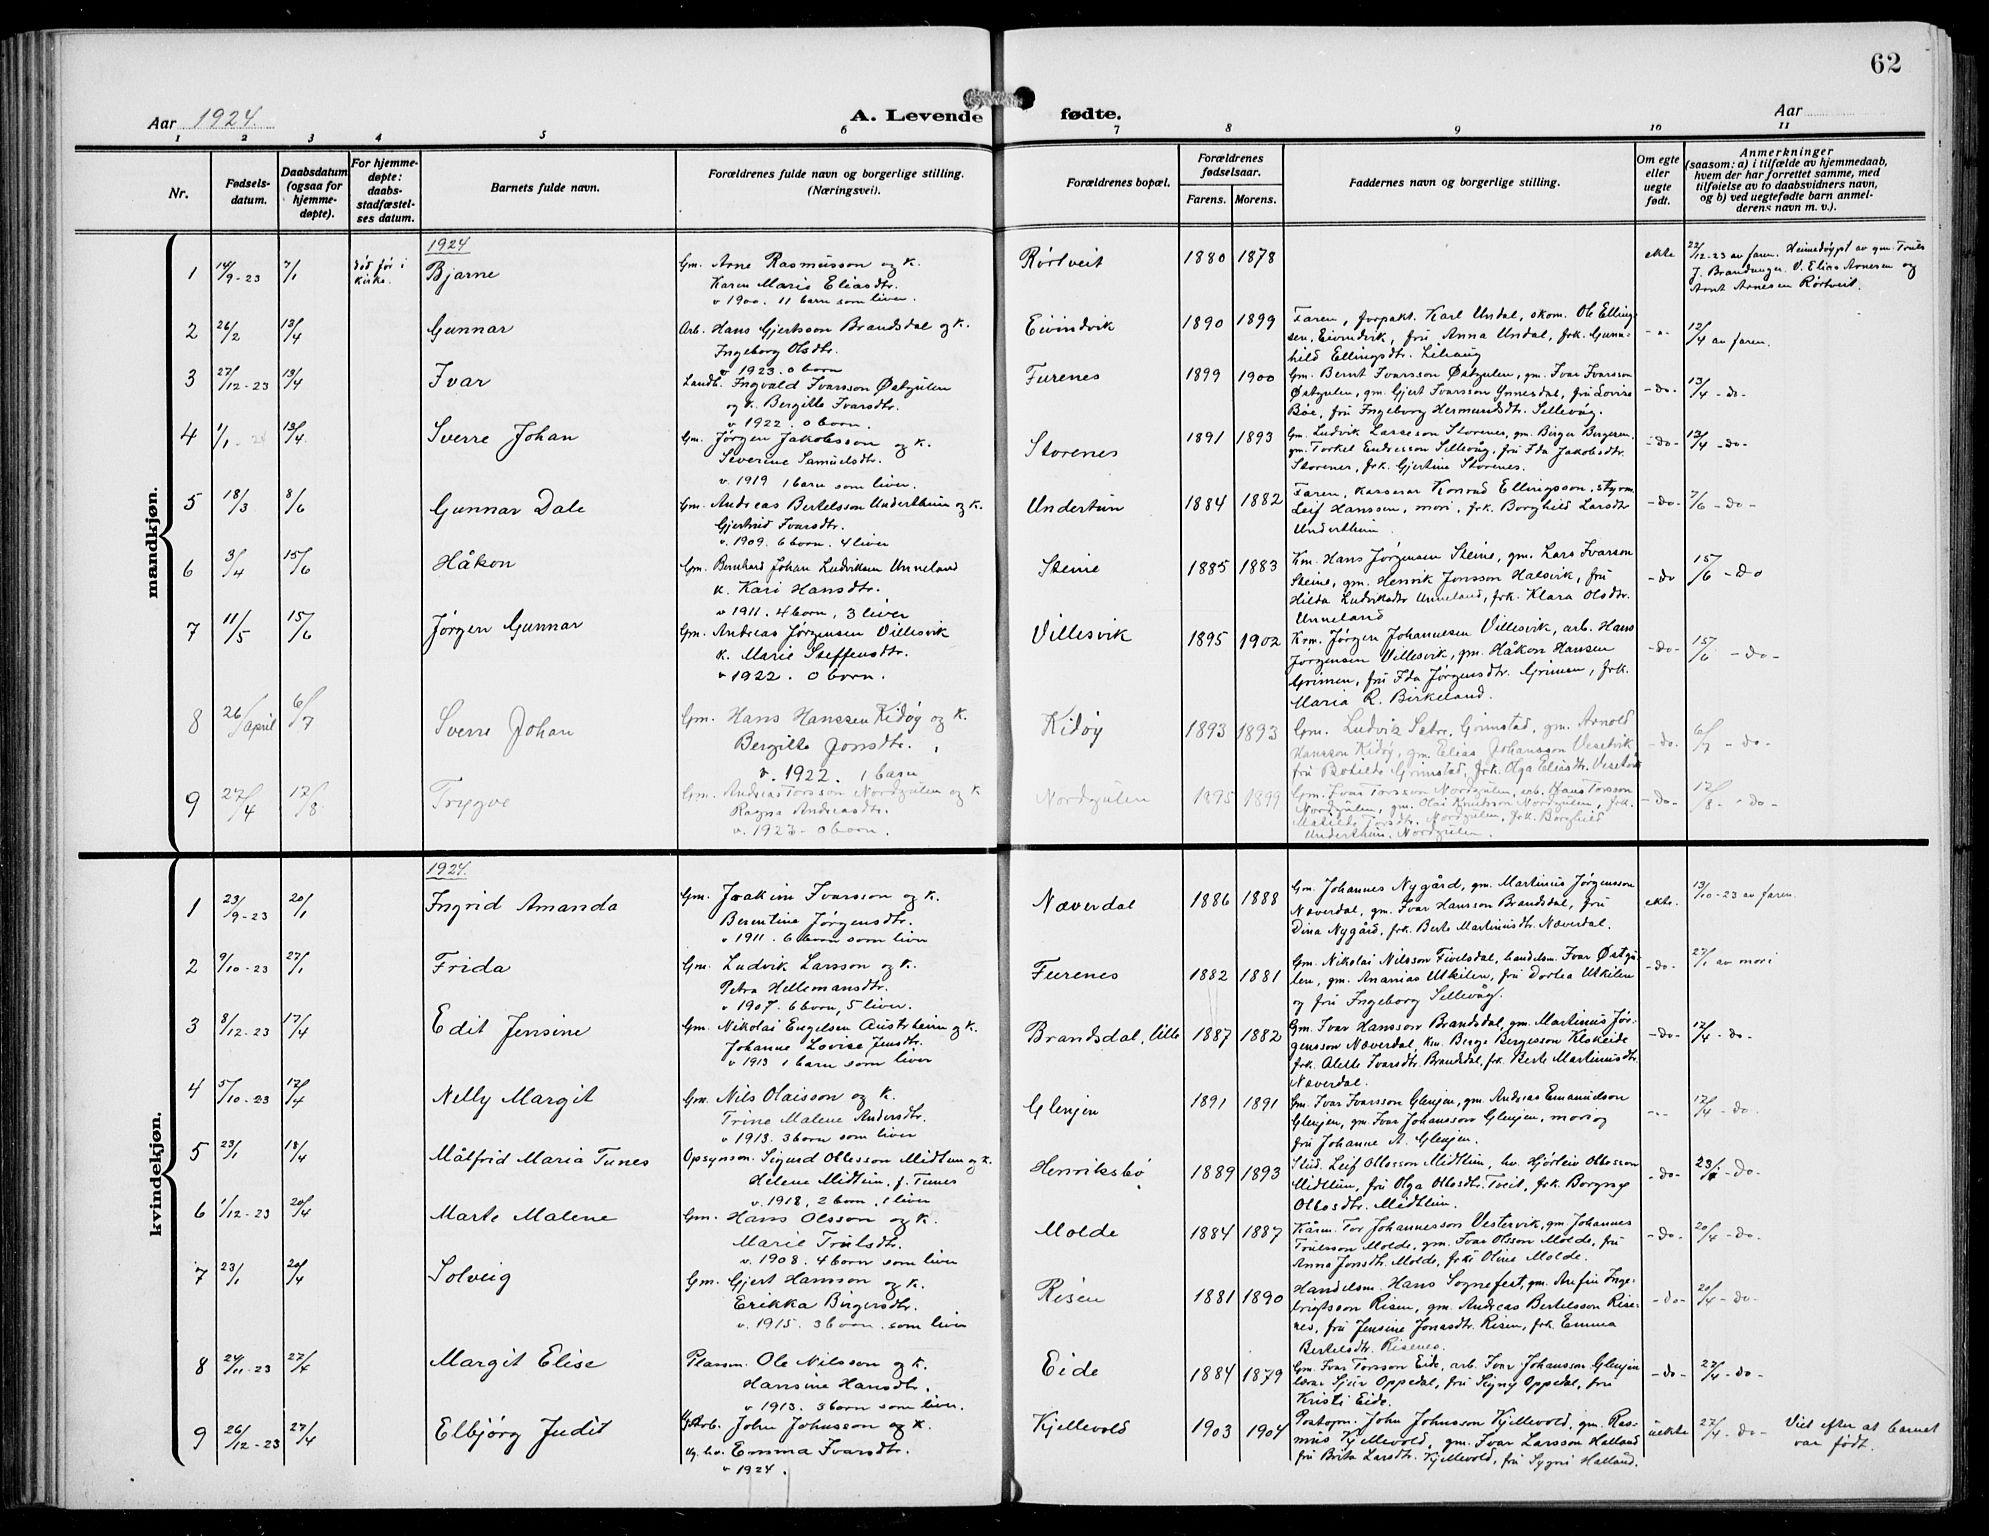 62
Aar 1924.
A. Levende fødte.
Aar
1 2 3 4 5 6 7 8 9 10 11
Nr.
Fødsels-
datum.
Daabsdatum
(ogsaa for
hjemme-
døpte).
For hjemme-
døpte:
daabs-
stadfæstel-
ses datum.
Barnets fulde navn.
Forældrenes fulde navn og borgerlige stilling.
(Næringsvei).
Forældrenes bopæl.
Forældrenes
fødselsaar.
Farens. Morens.
Faddernes navn og borgerlige stilling.
Om egte
eller
uegte
født.
Anmerkninger
(saasom: a) i tilfælde av hjemmedaab,
hvem der har forrettet samme, med
tilføielse av to daabsvidners navn,
og b) ved uegtefødte barn anmel-
derens navn m. v.).
mandkjøn.
1924
1 14/9-23 7/1 død før i kirke. Bjarne
Gm. Arne Rasmusson og k.
Karen Marie Eliasdtr.
v 1900. 11 barn som liver.
Rørtveit 1880 1878 ekte
22/12-23 av faren. Heimedøypt av gm. Truls
J. Brandanger. V. Elias Arnesen og
Arnt Arnesen Rörtveit.
2 26/2 13/4 Gunnar
Arb. Hans Gjertsson Brandsdal og k.
Ingeborg Olsdtr.
v 1923. 0 barn
Eivindvik 1890 1899
Faren, forpakt. Karl Undal, økom. Ole Elling-
sen, Eivindvik, fru Anna Undal, frk. Gunn-
hild Ellingsdtr. Lihaug
-"- 12/4 av faren.
3 27/12-23 13/4 Ivar
Landh. Ingvald Ivarsson Østgulen
og k. Bergitte Ivarsdtr.
v 1922. 0 born.
Furenes 1899 1900
Gm. Bernt Ivarsson Østgulen, gm. Ivar Ivarsson
Østgulen, gm. Gjert Ivarsson Ynnesdal, fru Lovise
Böe, fru Ingeborg Hermundsdtr. Sellevåg.
-do- 13/4 -do-
4 1/1-24 13/4 Sverre Johan
Gm. Jørgen Jakobsson og k.
Severine Samuelsdtr.
v. 1919 1 barn som liver.
Storenes 1891 1893
Gm. Ludvik Larsson Storenes, gm. Birger Bergersen,
gm. Torkel Endresson Sellevåg, fru Ida Jakobsdtr.
Storenes, frk. Gjertine Storenes.
-do- 13/4 -do-
5 18/3 8/6 Gunnar Dale
Gm. Andreas Bertelsson Underthun og k.
Gjertrud Ivarsdtr.
v. 1909. 6 born. 4 liver
Undertun 1884 1882
Faren, kasserar Konrad Ellingsson, styrm.
Leif Hanssen, mori, frk. Borghild Larsdtr
Underthun.
-do- 7/6 -do-
6 3/4 15/6 Håkon
Gm. Bernhard Johan Ludviksen Unneland
k. Kari Hansdtr.
v 1911. 4 born, 3 liver
Steine 1885 1883
Km. Hans Jørgensen Steine, gm. Lars Ivarson
Steine, gm. Henrik Jonsson Halsvik, fru
Hilda Ludviksdtr Unneland, frk. Klara Olsdtr.
Unneland
-do 15/6 -do
7 11/5 15/6 Jørgen Gunnar
Gm. Andreas Jørgensen Villesvik
k. Marie Steffensdtr.
v 1922. 0 born.
Villesvik 1895 1902
Krm. Jørgen Johannesen Villesvik, arb. Hans
Jørgensen Villesvik, gm. Håkon Hansen
Grimen, fru Ida Jørgensdtr. Grimen, frk.
Maria R. Birkeland.
-do- 15/6 -do-
8 26/April 6/7 Sverre Johan
Gm. Hans Hanssen Kidøy og k.
Bergitte Jonsdtr.
v. 1922. 1 barn
Kidøy 1893 1893
Gm. Ludvik Grimstad, gm. Arnold
Hansson Kidøy, gm. Elias Johansson Vesetvik
fru Botilda Grimstad, frk. Olga Eliasdtr. Vesetvik
-do- 6/7 -do-
9 27/4 17/8 Trygve
Gm. Andreas Torsson Nordgulen og k
Ragna Andreasdtr.
v. 1923 - 0 born.
Nordgulen 1895 1899
Gm. Ivar Torsson Nordgulen, arb. Hans Torsson
Nordgulen, gm. Olai Knutsson Nordgulen, frk.
Matilde Torsdtr. Nordgulen, frk. Borghild
Underthun, Nordgulen.
-do- 17/8 -do-
kvindekjøn.
1924.
1 23/9-23 20/1 Ingrid Amanda
Gm. Joakim Ivarsson og k.
Berentine Jørgensdtr.
v 1911. 6 born som liver
Næverdal 1886 1888
Gm. Johannes Nygård, gm. Martinus Jørgensson
Næverdal, gm. Ivar Hansson Brandsdal, fru
Dina Nygård, frk. Berte Martinusdtr. Næverdal.
ekte. 13/10-23 av faren.
2 9/10-23 27/1 Frida
Gm. Ludvik Larsson og k.
Petra Hellemansdtr.
v 1907. 6 born, 5 liver.
Furenes 1882 1881
Gm. Nikolai Nilsson Tivelsdal, handelsm. Ivar Østgu-
len, gm. Ananias Utkilen, fru Dortea Utkilen
og fru Ingeborg Sellevåg.
-do- 27/1 av mori
3 8/12-23 17/4 Edit Jensine
Gm. Nikolai Engelsen Austrheim og k.
Johanne Lovise Jensdtr.
v 1913 1 barn som liver
Brandsdal, litle 1887 1882
Gm. Ivar Hansson Brandsdal, gm. Martinus Jør-
gensson Næverdal, km. Berge Bergesson Kløkeide
frk. Alette Ivarsdtr. Brandsdal, frk. Berte Martinusdtr.
Næverdal.
-do- 17/4 -do-
4 5/10-23 17/4 Nelly Margit
Gm. Nils Olaisson og k.
Trine Malene Andersdtr.
v 1913. 3 born som liver
Glenjen 1891 1891
Gm. Ivar Ivarsson Glenjen, gm. Andreas Emanuelson
Glenjen, gm. Ivar Johansson Glenjen, mori og
fru Johanne A. Glenjen.
-"- 17/4 -do-
5 23/1 18/4 Målfrid Maria Tunes
Opsynsm. Sigurd Ottesson Midtun og k.
Helene Midtun, f. Tunes
v. 1918. 2 born, 1 liver
Henriksbø 1889 1893
Stud. Leif Ottosson Midttun, hv. Hjørleiv Ottosson
Midttun, fru Olga Ottosdtr. Tveit, frk. Borgny
Ottosdtr. Midttun.
-do- 23/1 -do-
6 1/12-23 20/4 Marte Malene
Gm. Hans Olsson og k.
Marie Trulsdtr.
v 1908. 4 born som liver
Molde 1884 1887
Kårm. Tor Johannesson Vestervik, gm. Johannes
Trulsson Molde, gm. Ivar Olsson Molde, fru
Anna Jonsdtr. Molde, frk. Oline Molde.
-do- 20/4 -do-
7 23/1 20/4 Solveig
Gm. Gjert Hansson og k.
Erikka Birgersdtr.
v. 1915. 3 born som liver
Risen 1881 1890
Handelsm. Hans Sognefest, gm. Arefin Inge-
brigtsson Risen, gm. Andreas Bertelsson Rise-
nes, fru Jensine Jonasdtr. Risen, frk. Emma
Bertelsdtr. Risenes.
-do- 20/4 -do-
8 24/11-23 27/4 Margit Elise
Plassm. Ole Nilsson og k.
Hansine Hansdtr.
v 1913. 3 born som liver.
Eide 1884 1879
Gm. Ivar Torsson Eide, arb. Ivar Johansson Glenjen
lærar Sjur Oppedal, fru Signy Oppedal, fru
Kristi Eide.
-do- 27/4 -do-
9 26/12-23 27/4 Elbjörg Judit
Arb. John Johnsson og k.
Emma Ivarsdtr.
v 1924.
Kjellevold 1903 1904
Postopn. John Johnsson Kjellevold, gm. Ras-
mus Kjellevold, gm. Ivar Larsson Halland
fru Brita Larsdtr. Kjellevold, fru Sygni Halland.
uekte 27/4 -do- Viet efter at barnet
var født.